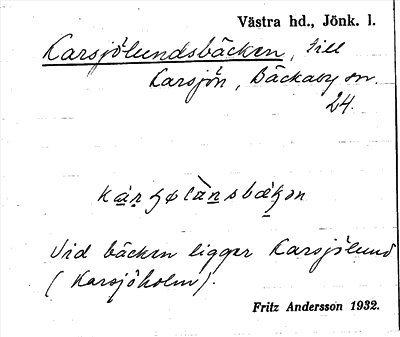 Västra hd., Jönk. l.
Karsjölundsbäcken, till
Karsjön, Bäckaby sn.
24.
Vid bäcken ligger Karsjölund
(Karsjöholm).
Fritz Andersson 1932.